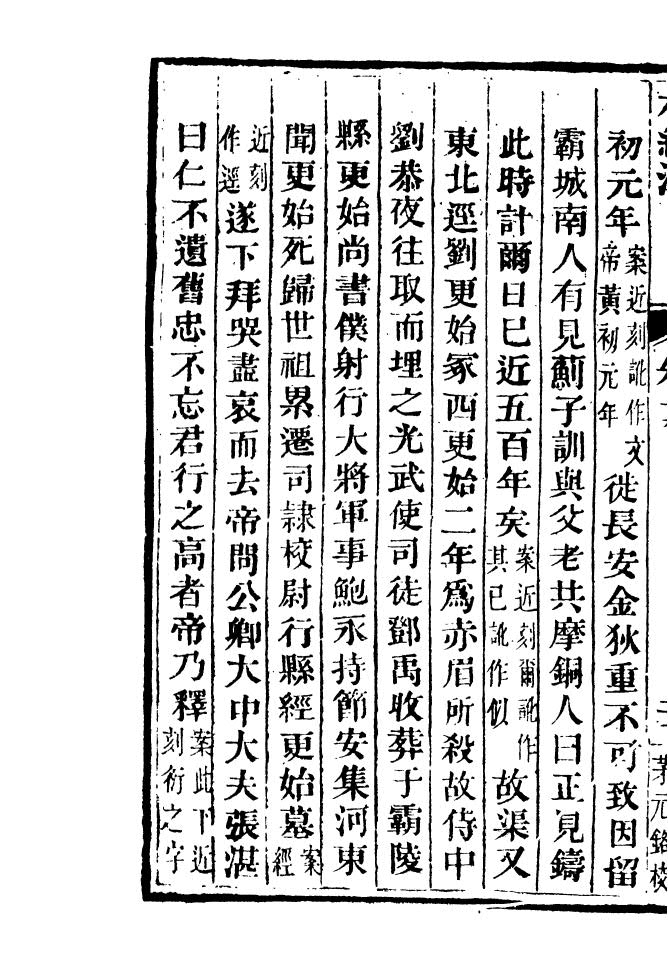 初元年案近刻訛作文帝黃初元年徙長安金狄重不可致因留
霸城南人有見薊子訓與父老共摩銅人曰正見鑄
此時計爾日已近五百年矣案近刻爾訛作其已訛作似故渠又
東北逕劉更始冢西更始二年為赤眉所殺故侍中
劉恭夜往取而埋之光武使司徒鄧禹收葬于霸陵
縣更始尚書僕射行大將軍事鮑永持節安集河東
聞更始死歸世祖累遷司隷校尉行縣經更始墓案經
近刻作逕遂下拜哭盡哀而去帝問公卿大中大夫張湛
曰仁不遺舊忠不忘君行之高者帝乃釋案此下近刻衍之字